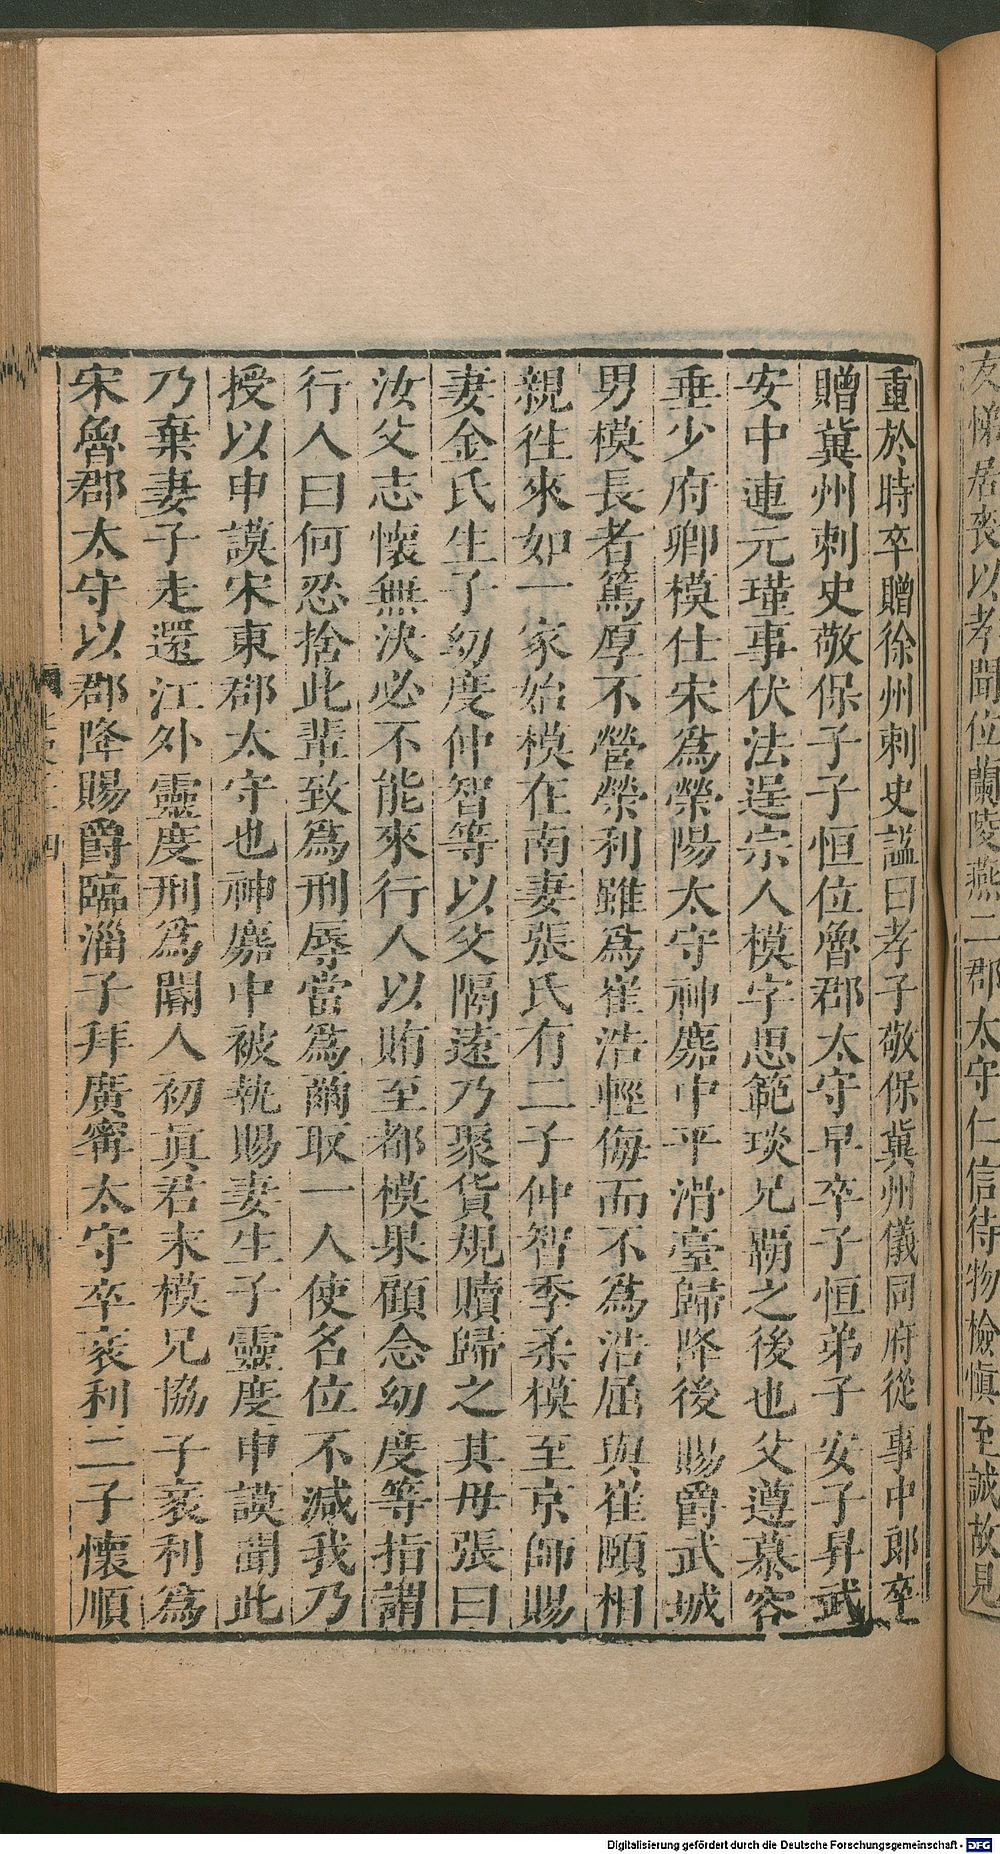 友悌居喪以孝聞位蘭陵燕二郡太守仁信待物檢愼至誠故見
重於時卒贈徐州刺史謚曰孝子敬保冀州儀同府從事中郎卒
贈冀州刺史敬保子子恒位魯郡太守早卒子恒弟子安子昇武
安中連元瑾事伏法逞宗人模字思範琰兄霸之後也父遵慕容
垂少府卿模仕宋爲滎陽太守神䴥中平滑臺歸降後賜爵武城
男模長者篤厚不營榮利雖爲崔浩輕侮而不爲浩屈與崔頤相
親徃來如一家始模在南妻張氏有二子仲智季柔模至京師賜
妻金氏生子幼度仲智等以父隔遠乃聚貨規贖歸之其母張曰
汝父志懷無決必不能來行人以賄至都模果顧念幼度等指謂
行人曰何忍捨此輩致爲刑辱當爲爾取一人使名位不減我乃
授以申謨宋東郡太守也神䴥中被執賜妻生子靈度申謨聞此
乃棄妻子走還江外靈度刑爲閹人初眞君末模兄協子衺利爲
宋魯郡太守以郡降賜爵臨淄子拜廣甯太守卒衺利二子懷順
四
Digitalisierung gefördert durch die Deutsche Forschungsgemeinschaft - DFG